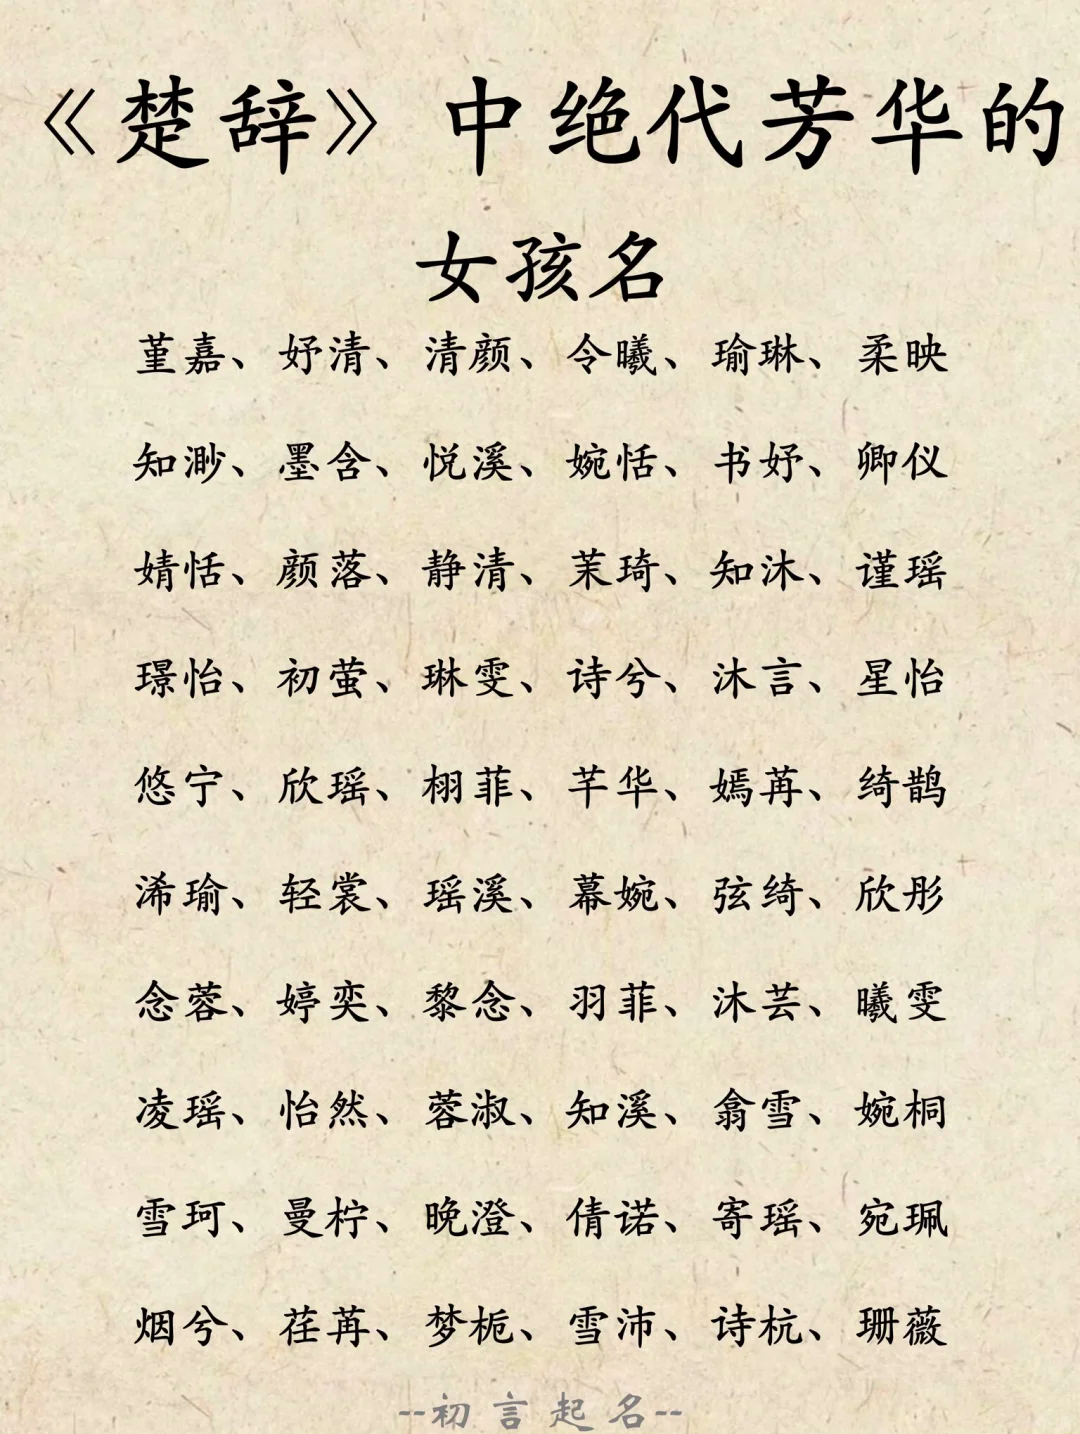 《楚辞》中绝代芳华的
女孩名
堇嘉、妤清、清颜、令曦、瑜琳、柔映
知渺、墨含、悦溪、婉恬、书妤、卿仪
婧恬、颜落、静清、茉琦、知沐、谨瑶
璟怡、初萤、琳雯、诗兮、沐言、星怡
悠宁、欣瑶、栩菲、芊华、嫣苒、绮鹊
浠瑜、轻裳、瑶溪、幕婉、弦绮、欣彤
念蓉、婷奕、黎念、羽菲、沐芸、曦雯
凌瑶、怡然、蓉淑、知溪、翕雪、婉桐
雪珂、曼柠、晚澄、倩诺、寄瑶、宛珮
烟兮、荏苒、梦栀、雪沛、诗杭、珊薇
--初言起名--